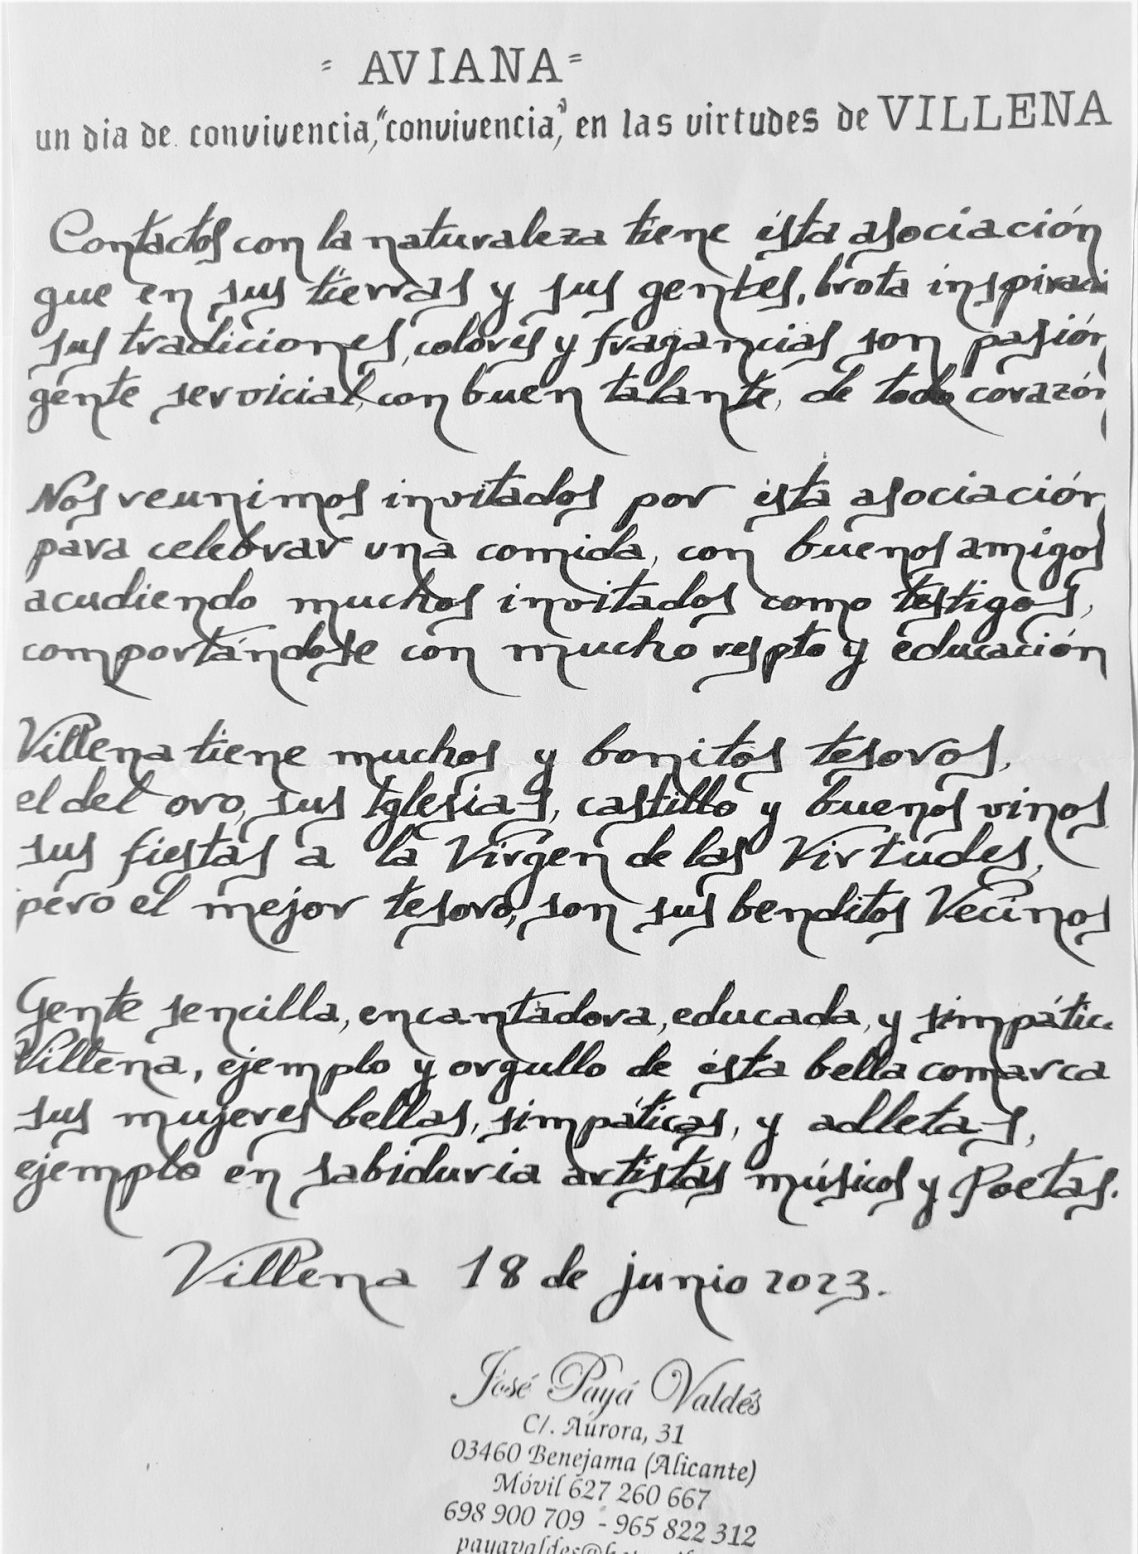 = AVIANA =
un dia de convivencia, "convivencia," en las virtudes de VILLENA
Contactos con la naturaleza tiene ésta asociación
que en sus tierras y sus gentes, brota inspiraci
sus tradiciones, colores y fragancias son pasión
gente servicial, con buen talante, de todo corazón
Nos reunimos invitados por ésta asociación
para celebrar una comida, con buenos amigos
acudiendo muchos invitados como testigos,
comportándose con mucho respto y educación
Villena tiene muchos y bonitos tesoros,
el del oro, sus Iglesias, castillo y buenos vinos
sus fiestas a la Virgen de las Virtudes,
pero el mejor tesoro, son sus benditos Vecinos
Gente sencilla, encantadora, educada, y simpátic
Villena, ejemplo y orgullo de ésta bella comarca
sus mujeres bellas, simpáticas, y adletas,
ejemplo en sabiduria artistas músicos y Poetas.
Villena 18 de junio 2023.
José Payá Valdés
C/. Aurora, 31
03460 Benejama (Alicante)
Móvil 627 260 667
698 900 709 - 965 822 312